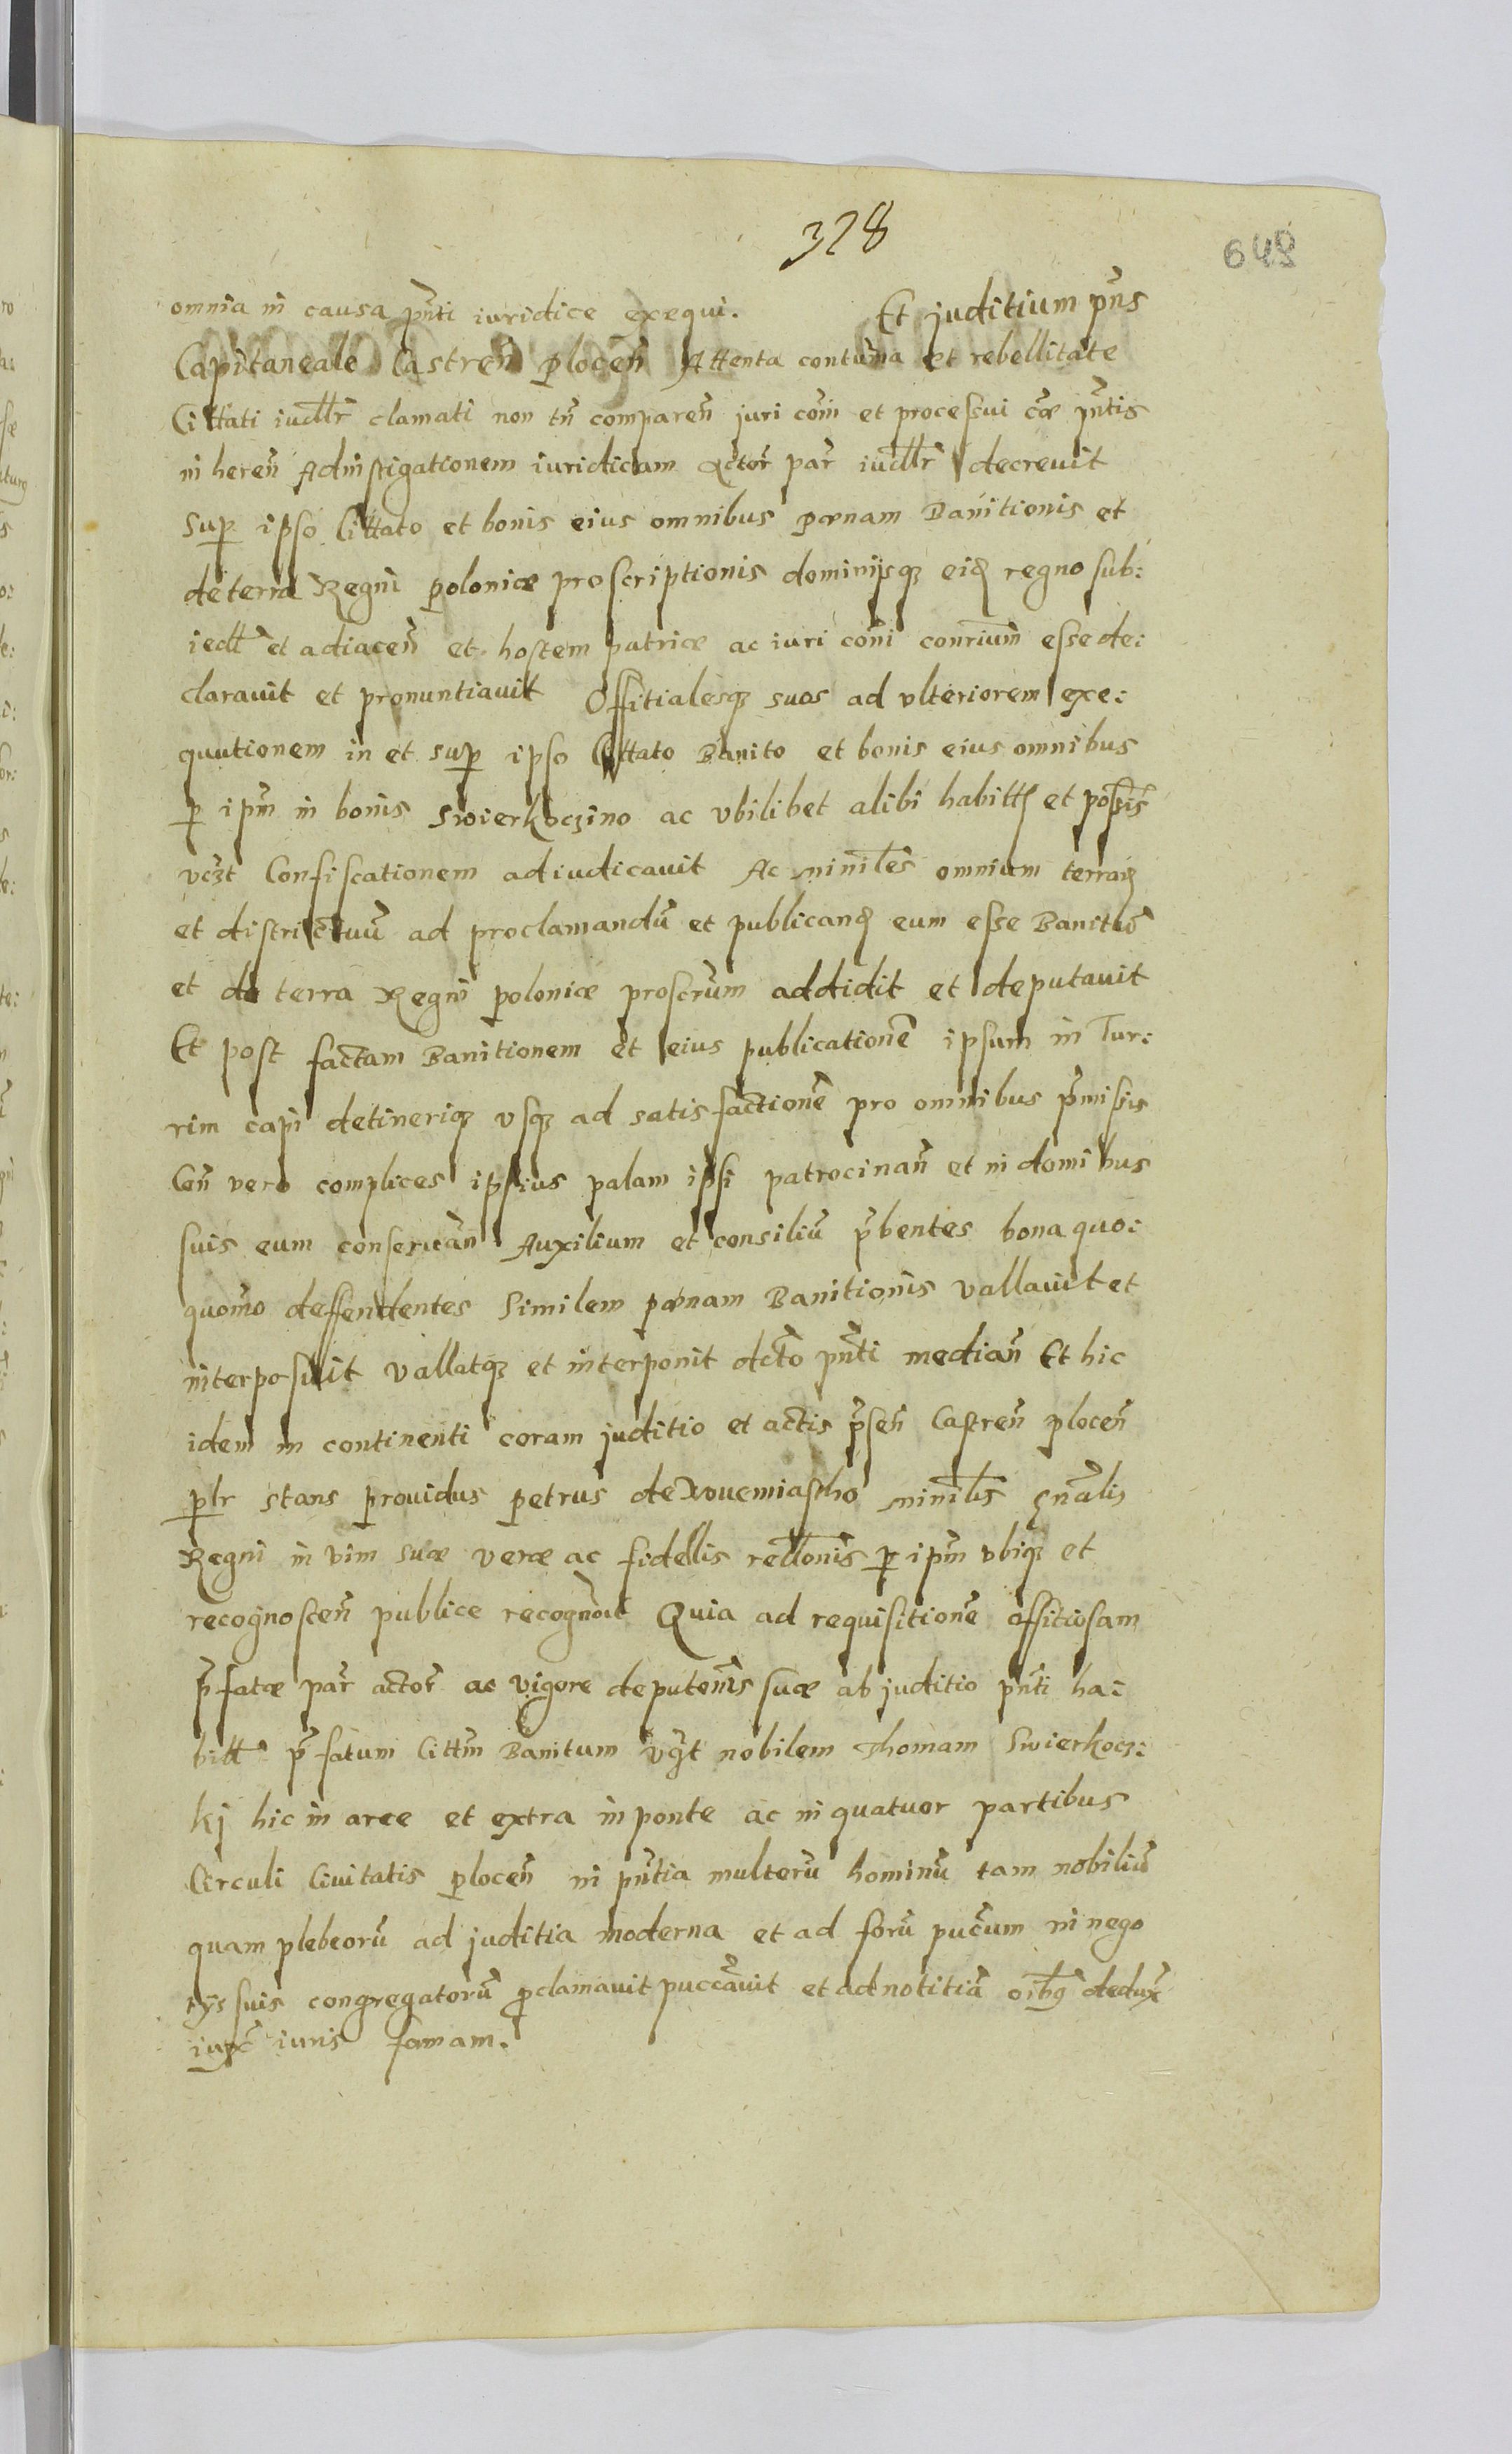 328
649
omnia in causa p̃nti iuridice exequi. Et juditium p̃ns
Capitaneale Castreñ plocen̄ Attenta contuma et rebellitate
Cittati iudllr̃ clamati non tñ compareñ juri com̃i et processui cæ p̃ntis
in hereñ Adinstigationem iuridicam actor̃ par̃ iudllr̃ decrevit
sup ipso Cittato et bonis eius omnibus pœnam Banitionis et
de terra Regni poloniæ proscriptionis dominijsq3 eid regno sub:
iectt̃ et adiaceñ et hostem patriæ ac iuri com̃i conrium̃ esse de:
claravit et pronuntiavit Offitialesq3 suos ad ulteriorem exe:
quutionem in et sup ipso Cittato Banito et bonis eius omnibus
p ipm̃ in bonis Swierkoczino ac ubilibet alibi habitt et possis̃
vc3t Confiscationem adiudicavit Ac minil̃es omnium terrar
et districtuũ ad proclamandũ et publicand eum esse Banitũ
et de terra Regni poloniæ proscrum̃ addidit et deputavit
Et post factam Banitionem et eius publicationẽ ipsum in Tur:
rim capi detineriq3 usq3 ad satisfactionẽ pro omnibus p̃missis
Ceñ vero complices ipsius palam ipsi patrocinañ et in domibus
suis eum conservañ Auxilium et consiliũ p̃bentes bona quo:
quom̃o deffendentes Similem pœnam Banitionis vallavit et
interposuit vallatq3 et interponit dcto p̃nti median̄ Et hic
idem in continenti coram juditio et actis p̃señ Castreñ plocen̄
plr stans providus petrus de Novemiastho minil̃is gñalis
Regni in vim suæ veræ ac fidellis rell̃onis p ipm̃ ubiq3 et
recognosceñ publice recogñovit Quia ad requisitionẽ offitiosam
p̃fatæ par̃ actor̃ ac vigore deputoñis suæ ab juditio p̃nti ha:
bitt̃ p̃fatum Cittm̃ Banitum vc3t nobilem Thomam Swierkocz:
kj hic in arce et extra in ponte ac in quatuor partibus
Circuli Civitatis plocen̄ in p̃ntia multorũ hominũ tam nobiliũ
quam plebeorũ ad juditia moderna et ad forũ pucum̃ in nego
tijs suis congregatorũ proclamavit puccavit̃ et ad notitiã oib9 dedux̃
iuxẽ iuris famam.